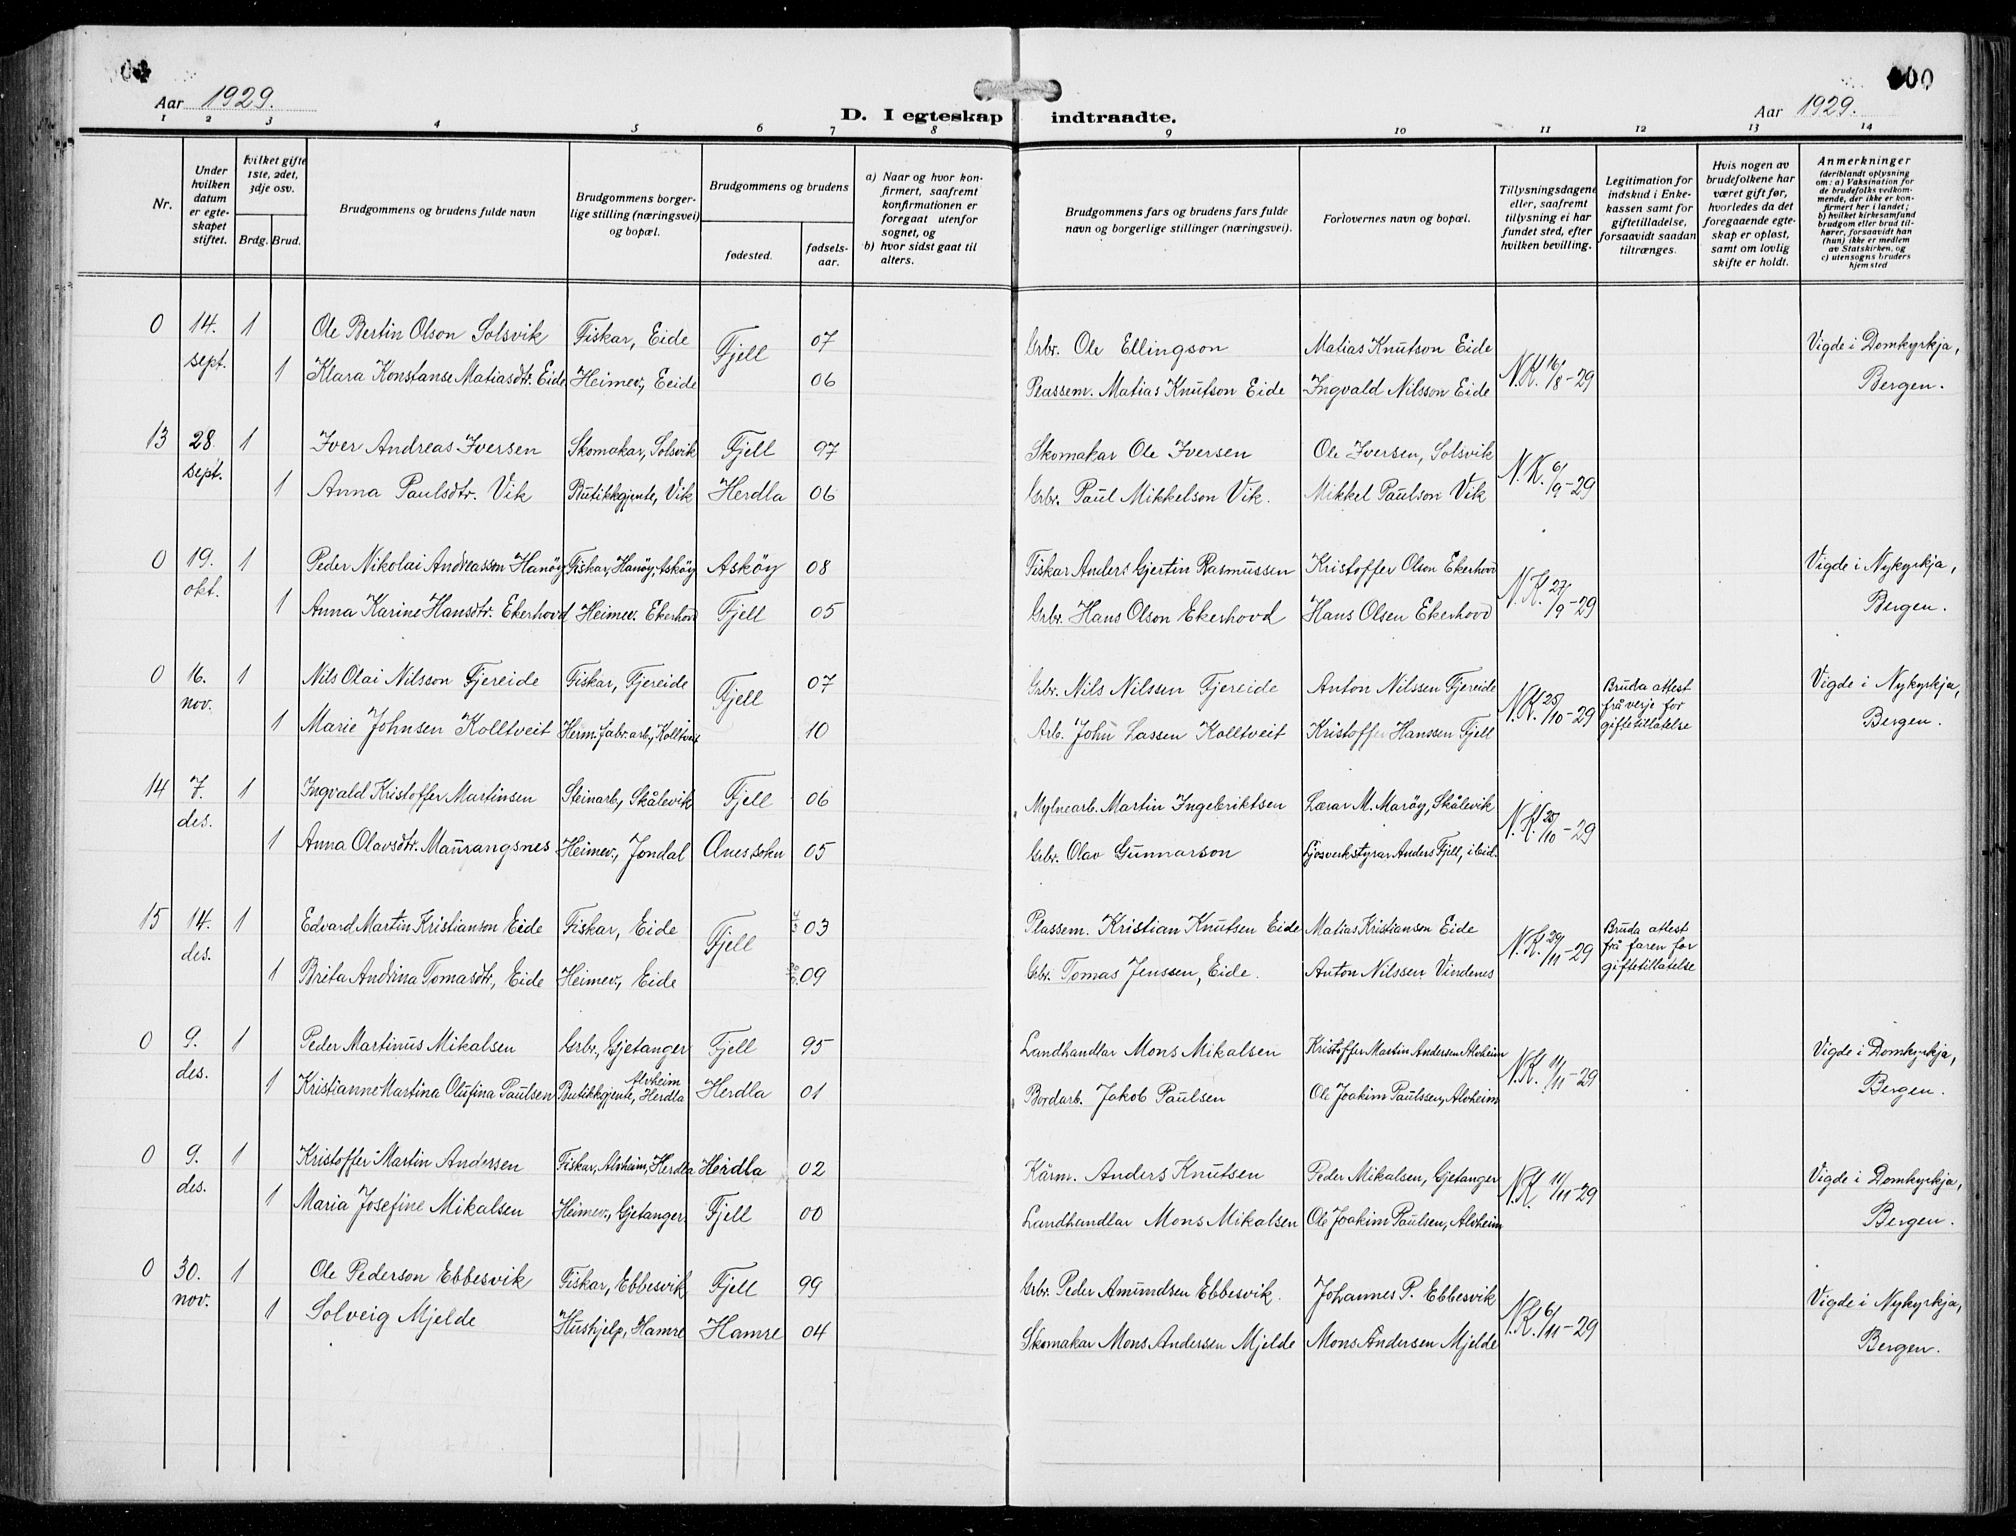 Aar 1929.
D. I egteskap indtraadte.
Aar 1929.
00
1 2 3 4 5 6 7 8 9 10 11 12 13 14
Nr.
Under hvilken datum er egteskapet stiftet.
Hvilket gifte 1ste, 2det, 3dje osv.
Brdg. Brud.
Brudgommens og brudens fulde navn
Brudgommens borgerlige stilling (næringsvei) og bopæl.
Brudgommens og brudens
fødested.
fødselsaar.
a) Naar og hvor konfirmert, saafremt konfirmationen er foregaat utenfor sognet, og
b) hvor sidst gaat til alters.
Brudgommens fars og brudens fars fulde navn og borgerlige stillinger (næringsvei).
Forlovernes navn og bopæl.
Tillysningsdagene eller, saafremt tillysning ei har fundet sted, efter hvilken bevilling.
Legitimation for indskud i Enkekassen samt for giftetilladelse, forsaavidt saadan tiltrænges.
Hvis nogen av brudefolkene har været gift før, hvorledes da det foregaaende egteskap er opløst, samt om lovlig skifte er holdt.
Anmerkninger (deriblandt oplysning om: a) Vaksination for de brudefolks vedkommende, der ikke er konfirmert her i landet; b) hvilket kirkesamfund brudgom eller brud tilhører, forsaavidt han (hun) ikke er medlem av Statskirken, og c) utensogns bruders hjemsted
0 14. sept. 1 Ole Bertin Olson Solsvik Fiskar, Eide Fjell 07 Grbr. Ole Ellingson Matias Knutson Eide N.K. 16/8-29 Vigde i Domkyrkja, Bergen.
1 Klara Konstanse Matiasdtr. Eide Heimev., Eeide 06 Plassem. Matias Knutson Eide Ingvald Nilsson Eide
13 28 sept. 1 Iver Andreas Iversen Skomakar, Solsvik Fjell 97 Skomakar Ole Iversen Ole Iversen, Solsvik N.K. 6/9-29
1 Anna Paulsdtr. Vik Butikkgjente, Vik Herdla 06 Grbr. Paul Mikkelson Vik. Mikkel Paulson Vik
0 19. okt. 1 Peder Nikolai Andreassen Hanøy Fiskar, Hanøy, Askøy Askøy 08 Fiskar Anders Gjertin Rasmussen Kristoffer Olson Ekerhovd N.K. 27/9-29 Vigde i Nykyrkja, Bergen.
1 Anna Karine Hansdtr. Ekerhovd Heimev. Ekerhovd Fjell 05 Grbr. Hans Olson Ekerhovd Hans Olsen Ekerhovd
0 16. nov. 1 Nils Olai Nilsson Fjereide Fiskar, Fjereide Fjell 07 Grbr. Nils Nilssen Fjereide Anton Nilssen Fjereide N.K. 25/10-29 Bruda attest frå verje for giftetillatelse Vigde i Nykyrkja, Bergen.
1 Marie Johnsen Kolltveit Herm. fabr.arb., Kolltveit 10 Arb. John Lassen Kolltveit Kristoffer Hanssen Fjell
14 7. des. 1 Ingvald Kristoffer Martinsen Steinarb., Skålevik Fjell 06 Mylnearb. Martin Ingebriktsen Lærar M. Marøy, Skålevik N.K. 25/10-29
1 Anna Olavsdtr. Maurangsnes Heimev., Jondal 05 Grbr. Olav Gunnarson Ljosverkstyrar Anders Fjell, ibid.
15 14. des. 1 Edvard Martin Kristianson Eide Fiskar, Eide Fjell 03 Plassem. Kristian Knutsen Eide Matias Kristianson Eide N.K. 29/11-29 Bruda attest frå faren for giftetillatelse
1 Brita Andrina Tomasdtr, Eide Heimev., Eide 09 Grbr. Tomas Jenssen, Eide. Anton Nilssen Vindenes
0 9. des. 1 Peder Martinus Mikalsen Grbr., Gjetanger Fjell 95 Landhandlar Mons Mikalsen Kristoffer Martin Andersen Alvheim N.K. 11/11-29 Vigde i Domkyrkja, Bergen.
1 Kristianne Martina Olufina Paulsen Butikkgjente, Alvheim Herdla Herdla 01 Bordarb. Jakob Paulsen Ole Joakim Paulssen, Alvheim
0 9. des. 1 Kristoffer Martin Andersen Fiskar, Alvheim, Herdla Herdla 02 Kårm. Anders Knutsen Peder Mikalsen, Gjetanger N.K. 11/11-29 Vigde i Domkyrkja, Bergen.
1 Maria Josefine Mikalsen Heimev., Gjetanger. Fjell 00 Landhandlar Mons Mikalsen Ole Joakim Paulsen, Alvheim
0 30. nov. 1 Ole Pederson Ebbesvik Fiskar, Ebbesvik Fjell 99 Grbr. Peder Amundsen Ebbesvik. Johannes P. Ebbesvik N.K. 6/11-29 Vigde i Nykyrkja, Bergen.
1 Solveig Mjelde Hushjelp, Hamre Hamre 04 Skomakar Mons Andersen Mjelde Mons Andersen Mjelde